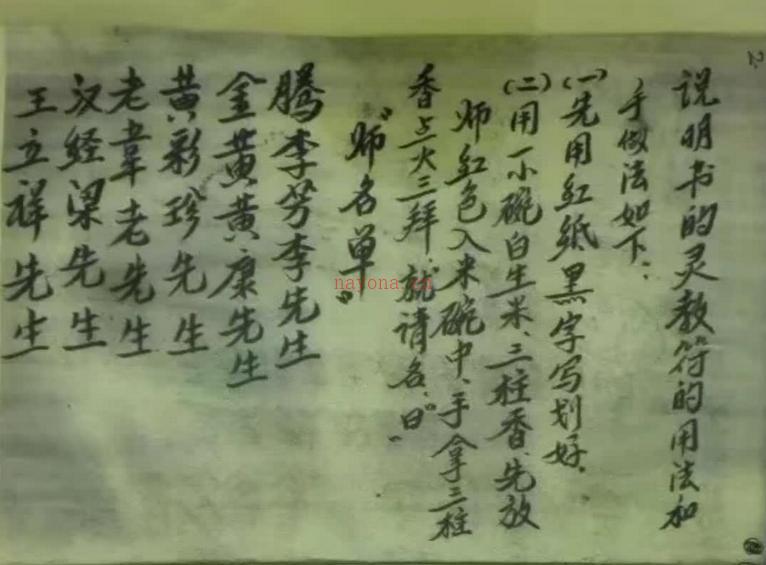 2.
说明书的灵教符的用法和
手做法如下：
(一)先用红纸黑字写划好．
(二)用一小碗白生米、三柱香、先放
师红色入米碗中、手拿三柱
香点火三拜就请名、曰"
"师名单"
腾李芳李先生
金黄黄康先生
黄彩珍先生
老韦老先生
汉经梁先生
王立祥先生
nayona.cn